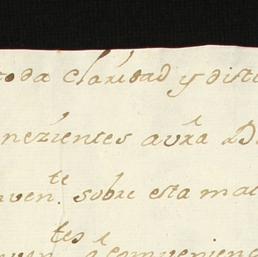 toda claridad y disti
nezientes a vra D
uen.te sobre esta mat
tes conuenienc